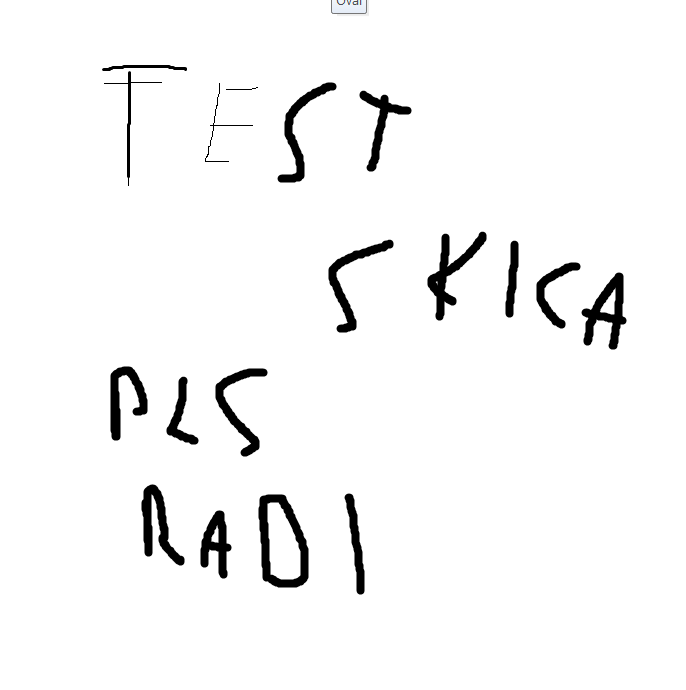 Oval
TEST
SKICA
PLS
RADI